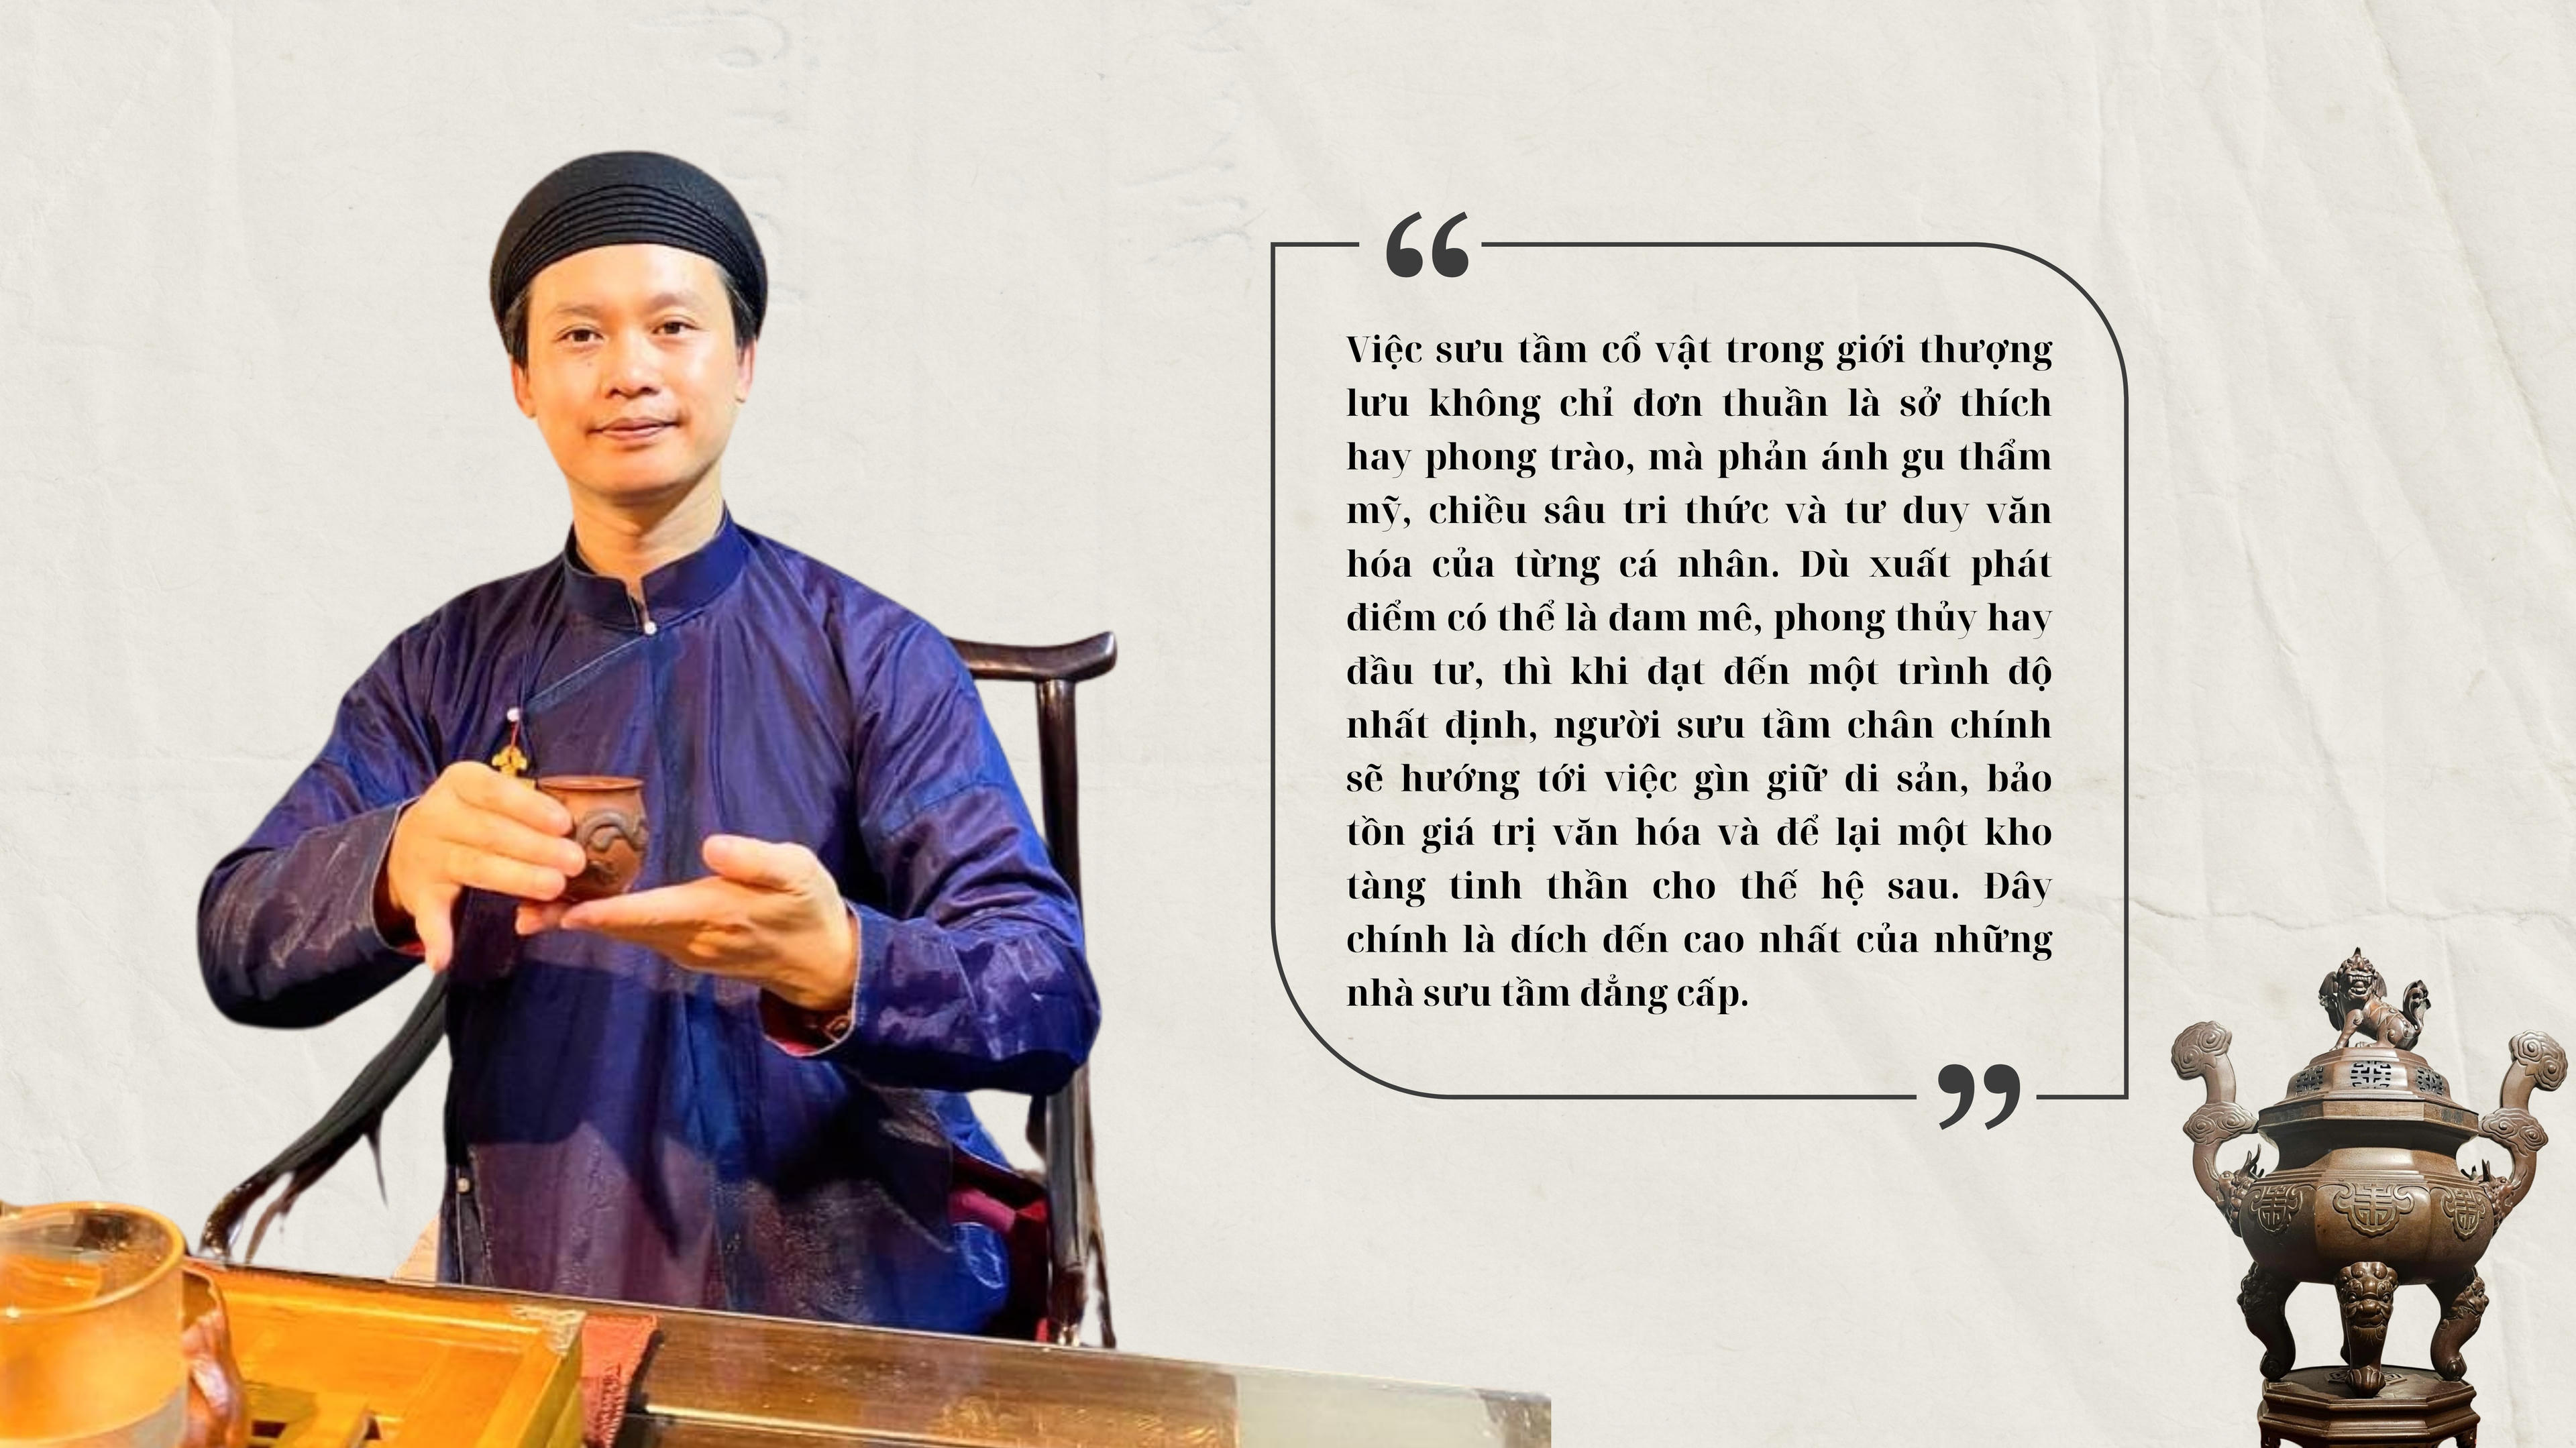 “
Việc sưu tầm cổ vật trong giới thượng
lưu không chỉ đơn thuần là sở thích
hay phong trào, mà phản ánh gu thẩm
mỹ, chiều sâu tri thức và tư duy văn
hóa của từng cá nhân. Dù xuất phát
điểm có thể là đam mê, phong thủy hay
đầu tư, thì khi đạt đến một trình độ
nhất định, người sưu tầm chân chính
sẽ hướng tới việc gìn giữ di sản, bảo
tồn giá trị văn hóa và để lại một kho
tàng tinh thần cho thế hệ sau. Đây
chính là đích đến cao nhất của những
nhà sưu tầm đẳng cấp.
”